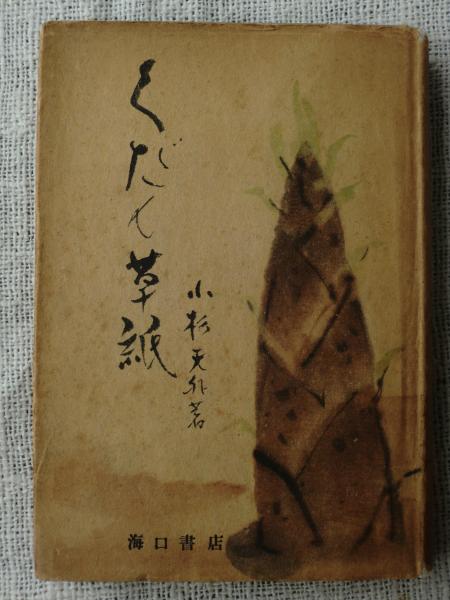 くだん草紙
小杉天外著
海口書店